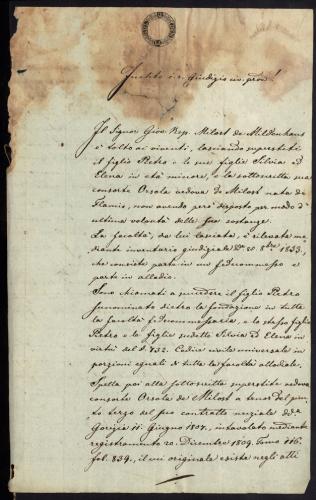 Inclito i. r. Giudizio civ. prov.!
Il Signor Giov. Nep. Milost de Mildenhaus
è tolto ai viventi, lasciando superstiti
il figlio Pietro e le sue figlie Silvia ed
Elena in età minore, e la sottoscritta sua
consorte Orsola vedova de Milost nata de
Flamio, non avendo però disposto per modo d'
ultima volontà delle sue sostanze.
La facoltà, da lui lasciata, è rilevata me-
diante inventario giudiziale dd. 8bre 1833,
che consiste parte in un fideicommesso e
parte in allodio.
Sono chiamati a succedere il figlio Pietro
sunominato dietro la fondazione in tutta
la facoltà fideicommissaria, e lo stesso figlio
Pietro e le figlie sudette Silvia ed Elena in
virtù del §. 732. Codice civile universale in
porzioni eguali di tutta la facoltà allodiale.
Spetta poi alla sottoscritta superstite vedova
consorte Orsola de Milost a tenor del pun-
to terzo del suo contratto nuziale dd.
Gorizia 11. Giugno 1807, intavolato mediante
registramento 20. Dicembre 1809. Tomo 116.
fol. 839, il cui originale esiste negli atti